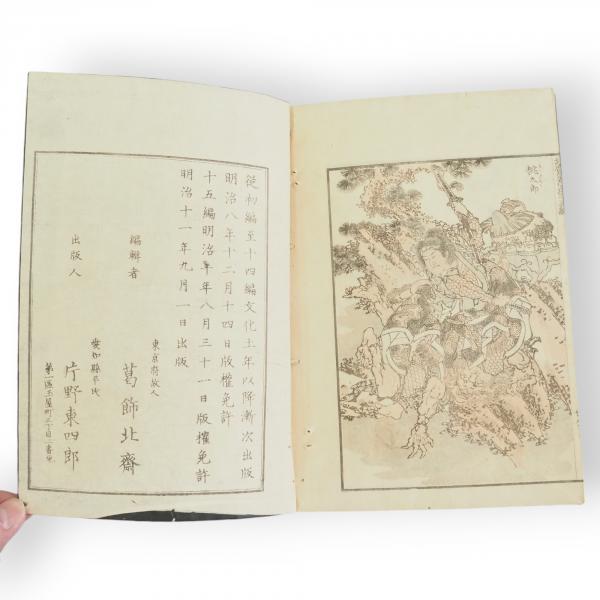 桃太郎
從初編至十四編文化十一年以降漸次出版
明治八年十二月十四日版權免許
十五編明治十一年八月三十一日版權免許
明治十一年九月一日出版
東京府故人
編輯者 葛飾北齋
愛知縣平民
出版人 片野東四郎
第一區玉屋町三丁目二番地